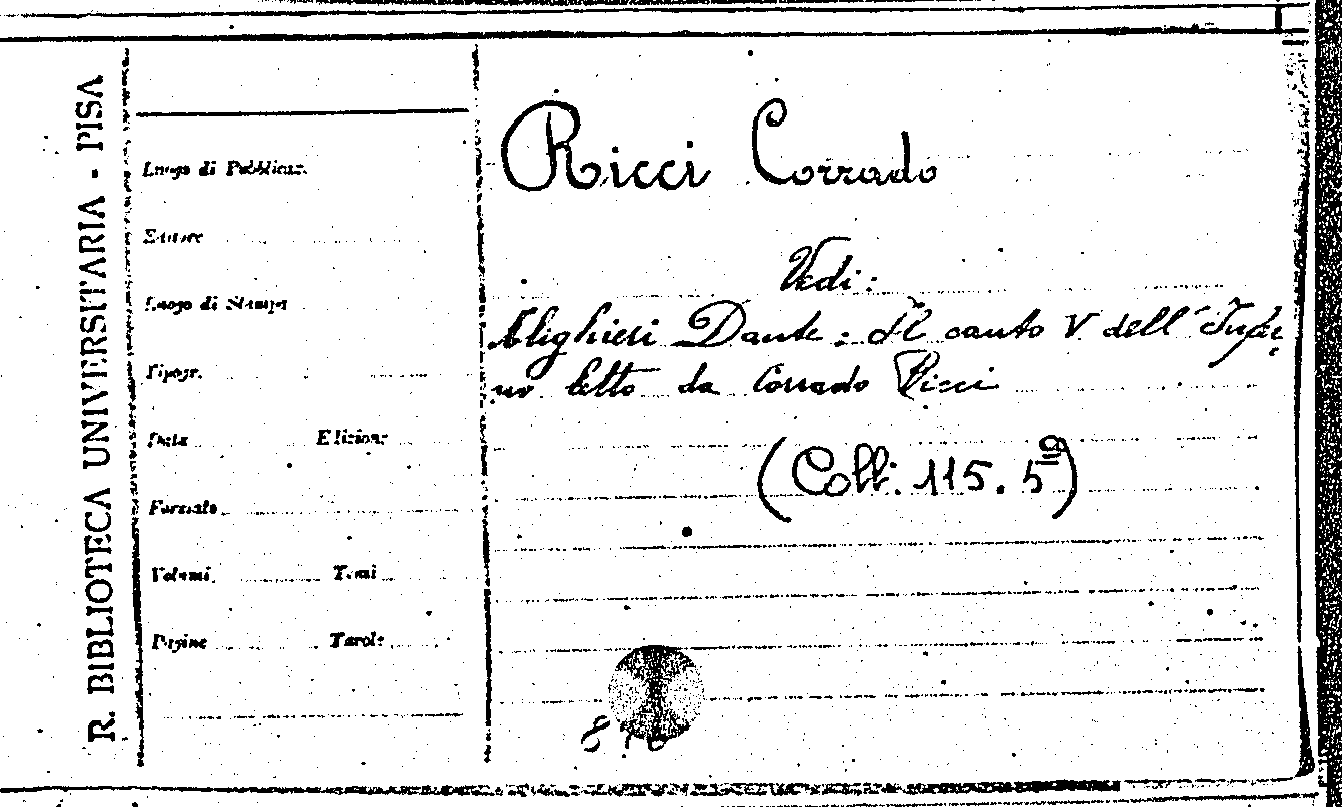 R. BIBLIOTECA UNIVERSITARIA - PISA
Luogo di Pubblicaz.
Editore
Luogo di Stampa
Tipogr.
Data Edizione
Formato
Volumi Tomi
Pagine Tavole
Ricci Corrado
Vedi:
Alighieri Dante: Il canto V dell'Infer
no letto da Corrado Ricci
(Coll. 115. 5º)